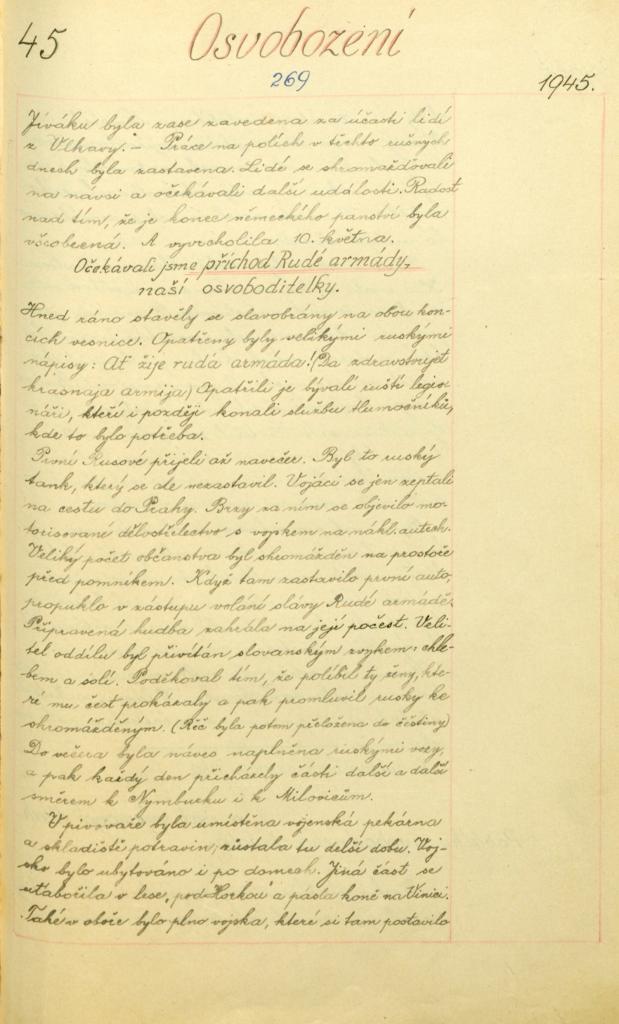 45
Osvobození
269
1945.
Jiváku byla zase zavedena za účasti lidí
z Vlkavy. – Práce na polích v těchto rušných
dnech byla zastavena. Lidé se shromažďovali
na návsi a očekávali další události. Radost
nad tím, že je konec německého panství byla
všeobecná. A vyvrcholila 10. května.
Očekávali jsme příchod Rudé armády,
naší osvoboditelky.
Hned ráno stavěly se slavobrány na obou kon-
cích vesnice. Opatřeny byly velikými ruskými
nápisy: Ať žije rudá armáda! (Da zdravstvujet
krasnaja armija) Opatřili je bývalí ruští legio-
náři, kteří i později konali službu tlumočníků,
kde to bylo potřeba.
První Rusové přijeli až navečer. Byl to ruský
tank, který se ale nezastavil. Vojáci se jen zeptali
na cestu do Prahy. Brzy za ním se objevilo mo-
torisované dělostřelectvo s vojskem na nákl. autech.
Veliký počet občanstva byl shromážděn na prostoře
před pomníkem. Když tam zastavilo první auto,
propuklo v zástupu volání slávy Rudé armádě.
Připravená hudba zahrála na její počest. Veli-
tel oddílu byl přivítán slovanským zvykem: chle-
bem a solí. Poděkoval tím, že políbil ty ženy, kte-
ré mu čest prokázaly a pak promluvil rusky ke
shromážděným. (Řeč byla potom přeložena do češtiny)
Do večera byla náves naplněna ruskými vozy,
a pak každý den přicházely části další a další
směrem k Nymburku i k Milovicům.
V pivovaře byla umístěna vojenská pekárna
a skladiště potravin; zůstala tu delší dobu. Voj-
sko bylo ubytováno i po domech. Jiná část se
utábořila v lese „pod Horkou" a pásla koně na Vinici.
Také v oboře bylo plno vojska, které si tam postavilo